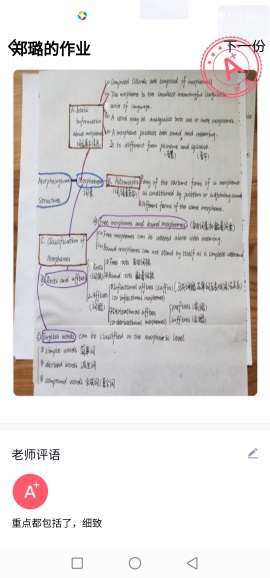 郑璐的作业
下一份
A+
A. Basic
information
about morpheme
① Composed (words are composed of morphemes).
② The morpheme is the smallest meaningful linguistic
unit of language.
③ A word may be analyzable into one or more morphemes.
④ A morpheme possess both sound and meaning.
It is different from phoneme and syllable.
Morphological
structure
Morpheme
B. Allomorph
any of the variant forms of a morpheme
as conditioned by position or adjoining sounds
different forms of the same morpheme.
C. Classification of
Morphemes
① Free morphemes and bound morphemes
Free morphemes can be uttered alone with meaning.
Bound morphemes can not stand by itself as a complete utterance
② Roots and affixes
1. Roots
① Free root
② Bound root
2. Affixes
① Inflectional affixes
(or inflectional morphemes)
② Derivational affixes
(or derivational morphemes)
prefixes
suffixes
③ English words can be classified on the morphemic level
① simple words 简单词
② derived words 派生词
③ compound words
老师评语
A+
重点都包括了，细致